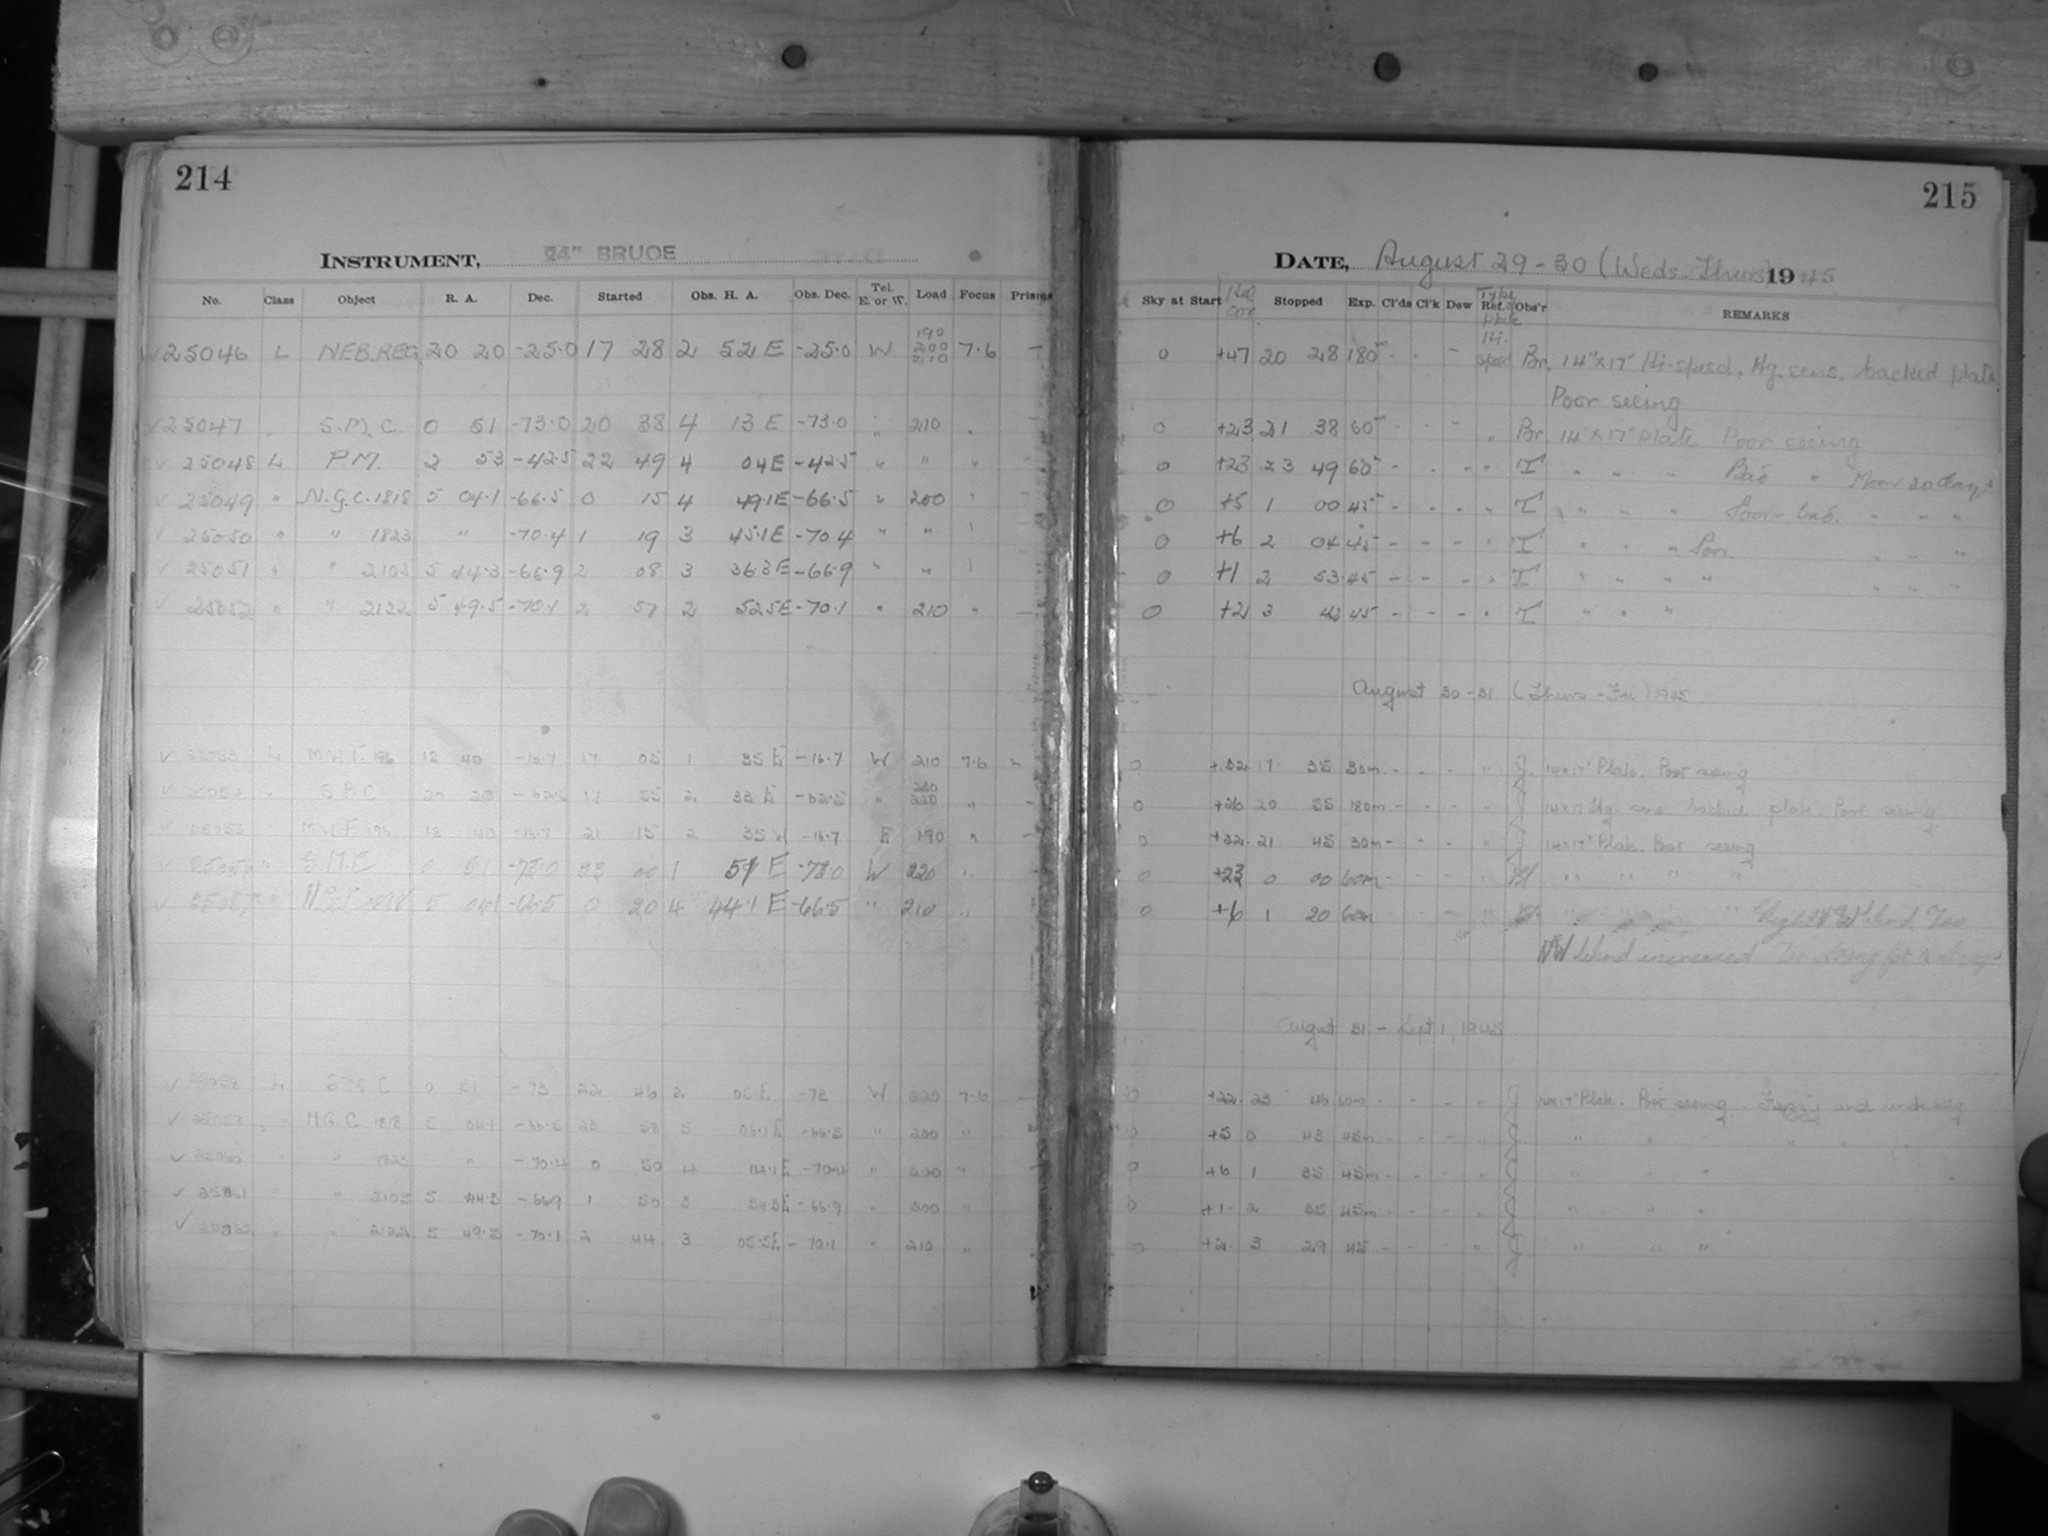 214
215
INSTRUMENT, 24" BRUCE
DATE, August 29-30 (Weds. Thurs) 1945
No. Class Object R. A. Dec. Started Obs. H. A. Obs. Dec. Tel. E. or W. Load Focus Prisms
Sky at Start Stopped Exp. Cl'ds Cl'k Dew Type Ref. Plate Obs'r REMARKS
25046 L NEB. REG 20 20 -25.0 17 28 2 52 E -25.0 W 190 200 210 7.6 - 0 +47 20 28 180m Hi-speed Br 14"x17" Hi-speed, Hg. sens. backed plate
Poor seeing
25047 " S.M.C. 0 51 -73.0 20 38 4 13 E -73.0 " 210 " 0 +23 21 38 60m Br 14"x17" plate Poor seeing
25048 L P.M. 2 53 -42.5 22 49 4 04 E -42.5 " " " 0 +23 23 49 60m T " " " Bad " Moon 20 days
25049 " N.G.C. 1818 5 04.1 -66.5 0 15 4 49.1 E -66.5 " 200 " 0 +5 1 00 45 T " " " Poor-bad. - - "
25050 " " 1823 " -70.4 1 19 3 45.1 E -70.4 " " " 0 +6 2 04 45 T " " " Poor
25051 " " 2103 5 44.3 -66.9 2 08 3 36.3 E -66.9 " " " 0 +1 2 53 45 T " " " "
25052 " " 2122 5 49.5 -70.1 2 57 2 52.5 E -70.1 " 210 " 0 +2 3 42 45 T " " "
August 30-31 (Thurs-Fri) 1945
25053 L M.W.F. 196 18 40 -16.7 17 05 1 35 E -16.7 W 210 7.6 0 +32 17 35 30m J. 14x17" Plate. Poor seeing
25054 " S.P.C. -62.5 17 55 2 33 E -62.5 " 220 " 0 +36 20 55 180m J 14x17 Hg. sens. backed plate. Poor seeing
25055 " M.W.F. 196 18 40 -16.7 21 15 2 35 W -16.7 E 190 " 0 +32 21 45 30m J 14x17" Plate. Poor seeing
25056 " S.M.C 0 51 -73.0 23 00 1 51 E -73.0 W 220 " 0 +23 0 00 60m " " " " "
25057 " N.G.C. 1818 5 04.1 -66.5 0 20 4 44.1 E -66.5 " 210 " 0 +6 1 20 60m " " " " " Wind
NW Wind increased Too strong for
August 31 - Sept 1, 1945
25058 L S.M.C 0 51 -73 22 46 2 05 E -73 W 220 7.6 0 +22 23 46 60m J. 14x17" Plate. Poor seeing. Fuzzy and unsteady
25059 " N.G.C. 1818 5 04.1 -66.5 23 58 5 06.1 E -66.5 " 200 " 0 +5 0 43 45m J " " " " "
25060 " " 1823 " -70.4 0 50 4 14.1 E -70.4 " 200 " 0 +6 1 35 45m J " " "
25061 " " 2103 5 44.3 -66.9 1 50 3 54.3 E -66.9 " 200 " 0 +1 2 35 45m J " " "
25062 " " 2122 5 49.5 -70.1 2 44 3 05.5 E -70.1 " 210 " 0 +2 3 29 45 J " " "